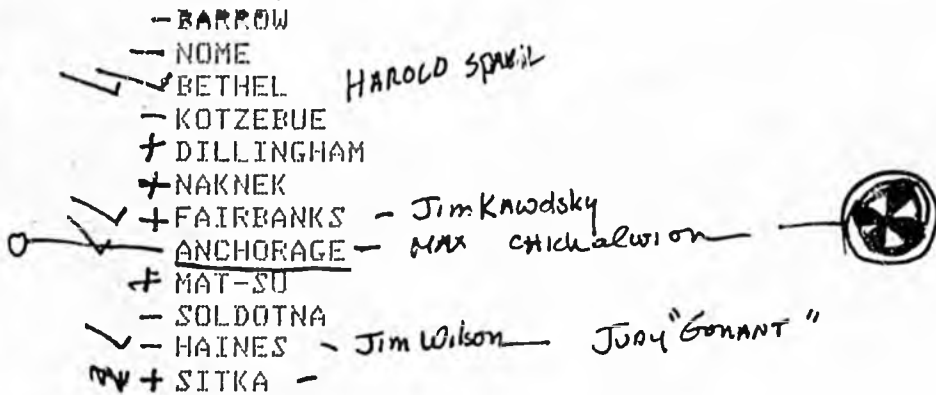 - BARROW
- NOME
BETHEL HAROLD
- KOTZEBUE
+ DILLINGHAM
+ NAKNEK
+ FAIRBANKS - Jim
ANCHORAGE - MAX
+ MAT-SU
- SOLDOTNA
- HAINES - Jim Wilson — JUDY "GORANT"
+ SITKA -